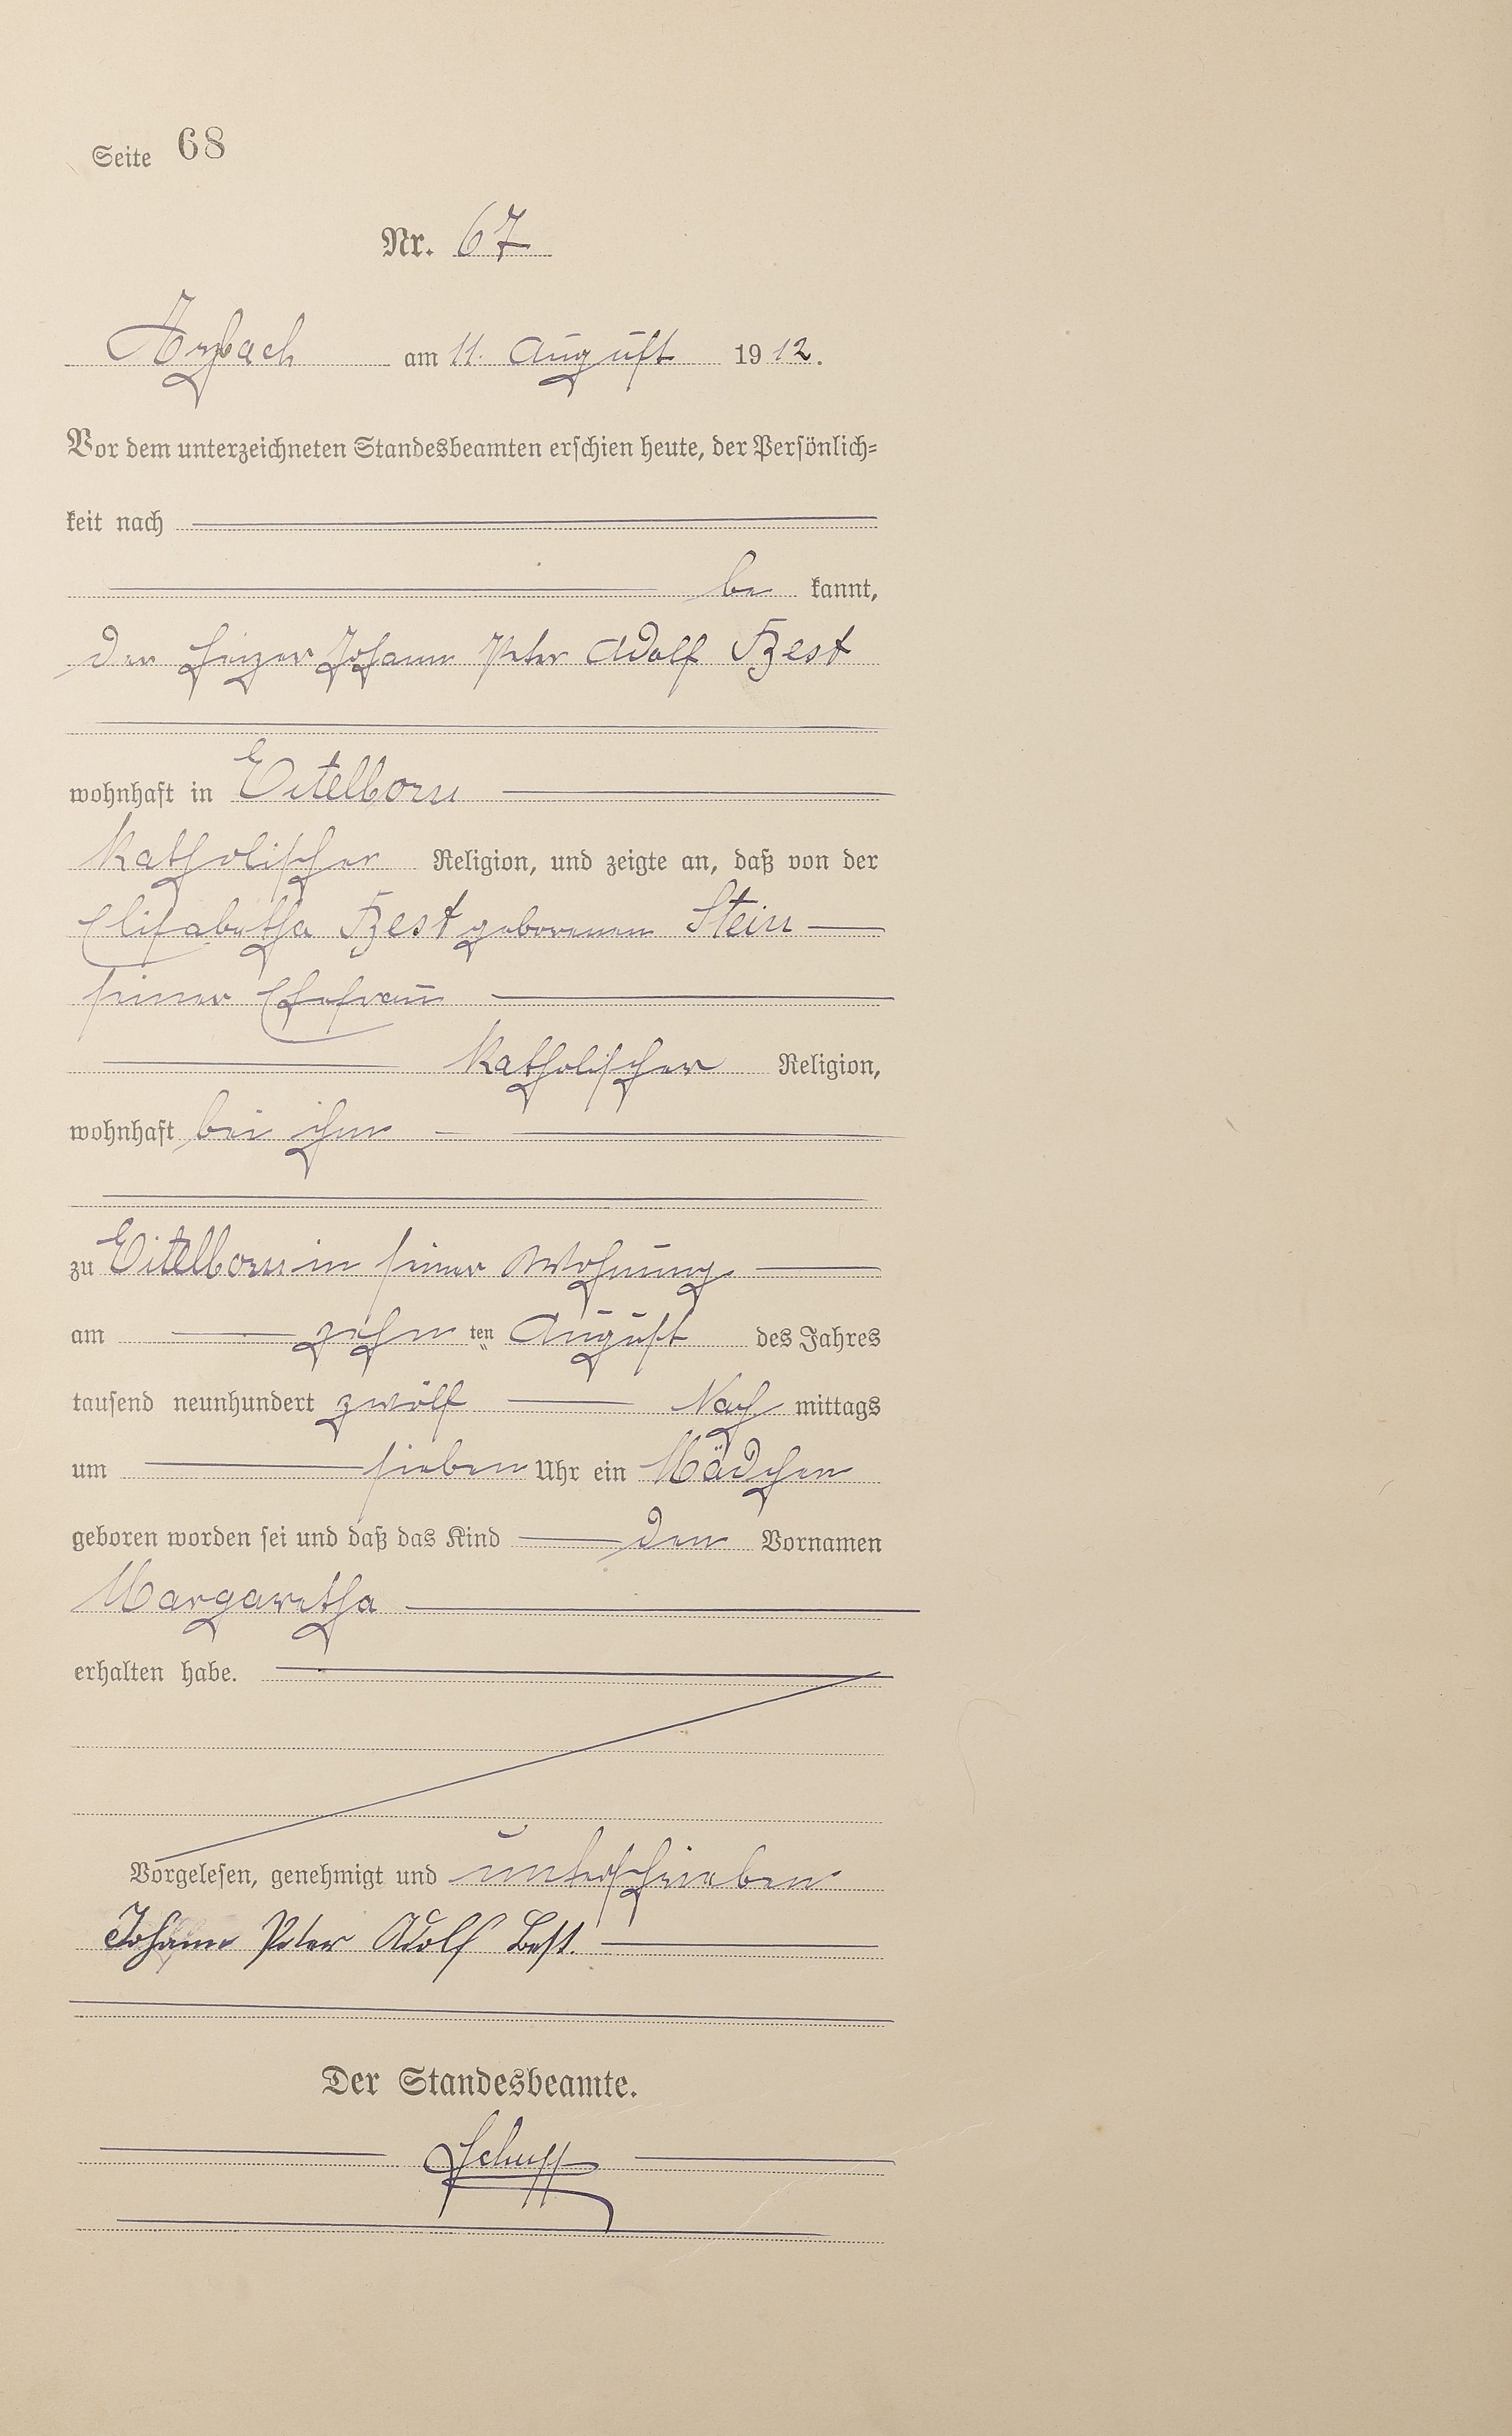 Seite 68
Nr. 67
Arzbach am 11. August 1912.
Vor dem unterzeichneten Standesbeamten erschien heute, der Persönlich=
keit nach
be kannt,
der Heizer Johann Peter Adolf Best
wohnhaft in Eitelborn
katholischer Religion, und zeigte an, daß von der
Elisabetha Best geborenen Stein
seiner Ehefrau
katholischer Religion,
wohnhaft bei ihm
zu Eitelborn in seiner Wohnung
am zehn ten August des Jahres
tausend neunhundert zwölf Nach mittags
um sieben Uhr ein Mädchen
geboren worden sei und daß das Kind den Vornamen
Margaretha
erhalten habe.
Vorgelesen, genehmigt und unterschrieben
Johann Peter Adolf Best.
Der Standesbeamte.
Schupp